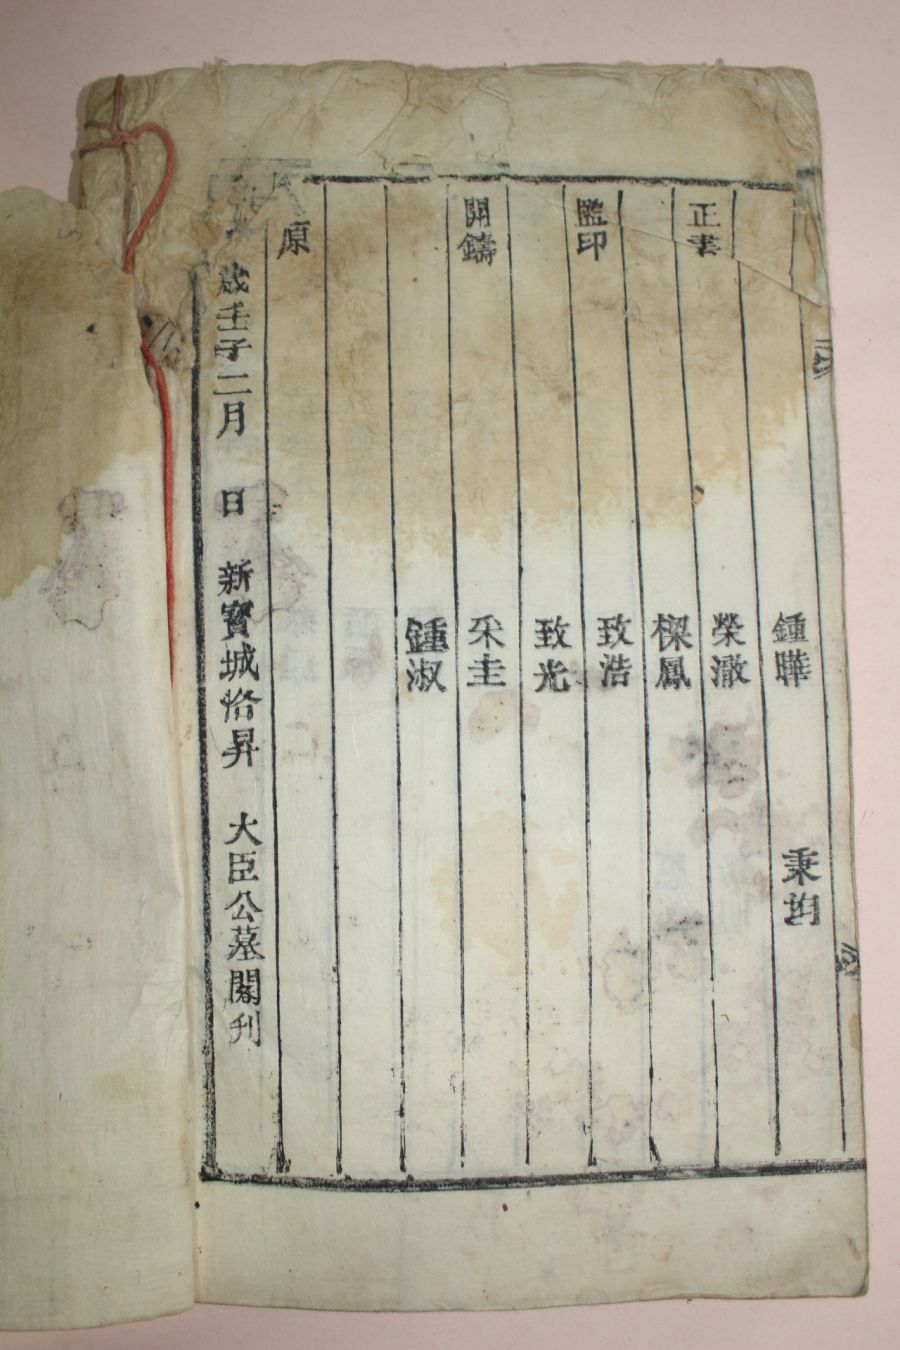 鍾曄 秉均
正書 榮澈
樑鳳
監印 致浩
致光
開鑄 采圭
鍾淑
原
歲壬子二月 日 新寶城洽昇 大臣公墓閣刋